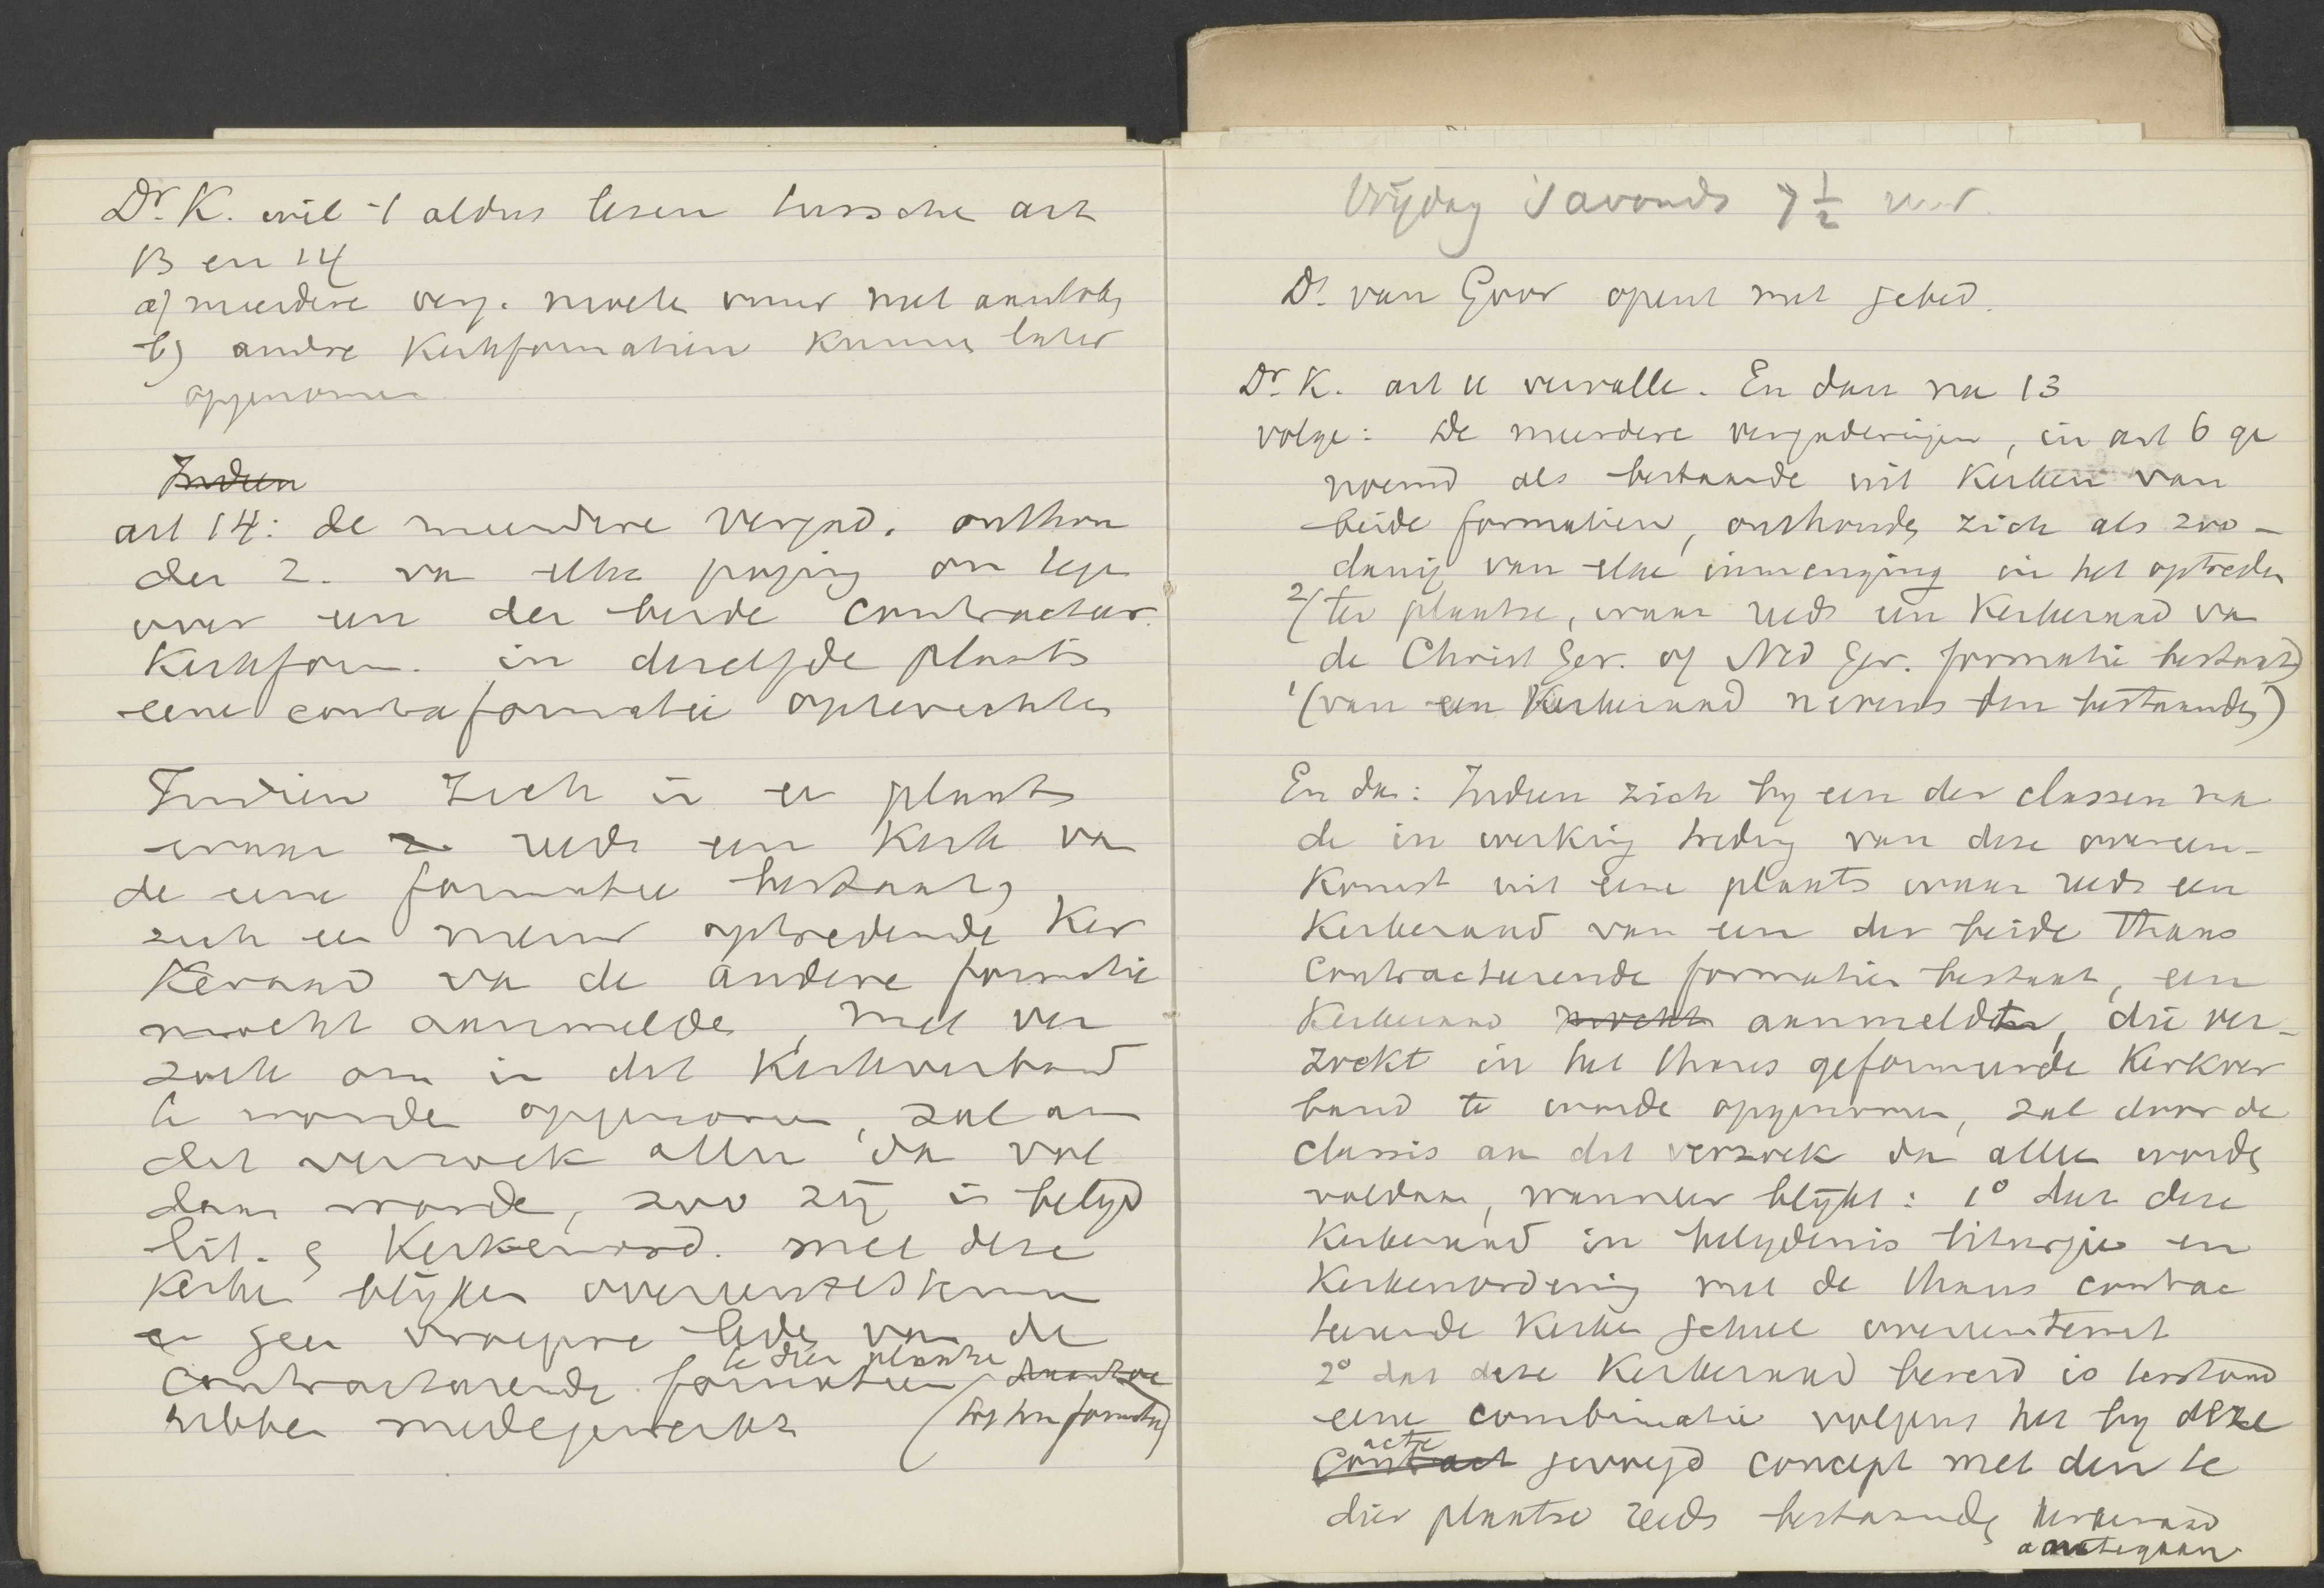 Dr. K. wil 't aldus lezen tussche art
13 en 14
a) meerdere verg. moete
b) andre Kerkformatien kunne later
opgenomen
Indien
art 14: de meerdere vergad. onthou
den z. va elke poging om tege
over een der beide contracteer.
Kerkform. in dezelfde plaats
eene contraformatie opterechten
Indien zich in ee plaats
waar reeds een Kerk va
de eene formatie bestaat,
zich ee nieuw optredende Ker
keraad va de andere formatie
mocht aanmelde, met ver
zoek om in det Kerkverband
te worde opgenomen, zal aan
dit verzoek alleen da vol
daan worde, zoo zij in belijd
lit. & Kerkenord. met deze
Kerke blijken overeentestemmen
en geen vroegere lede van de
contracteerende formatien te dier plaatse
hebben medegewerkt (tot hun formatie)
Vrijdag 's avonds 7 1/2 uur.
Ds. van Goor opent met gebed.
Dr. K. art 11 vervalle. En dan na 13
volge: De meerdere vergaderingen, in art 6 ge
noemd als bestaande uit Kerken van
beide formatien, onthoude zich als zoo-
danig van elke inmenging in het optreden
2/(ter plaatse, waar reeds een Kerkeraad va
de Christ Ger. of Ned Ger. formatie bestaat)
1/(van een Kerkeraad nevens den bestaande)
En da: Indien zich by een der classen na
de in werking treding van deze overeen-
komst uit eene plaats waar reeds een
Kerkeraad van een der beide thans
contracteerende formatien bestaat, een
Kerkeraad mocht aanmelden, die ver-
zoekt in het thans geformeerde Kerkver
band te worde opgenomen, zal door de
classis aan dit verzoek dan alleen worde
voldaan, wanneer blijkt: 1° dat deze
Kerkeraad in belydenis liturgie en
Kerkenordening met de thans contrac
teerende Kerke geheel overeenstemt
2° dat deze Kerkeraad bereid is terstond
eene combinatie volgens het by deze
acte
Contract gevoegd concept met den te
dier plaatse reeds bestaande Kerkeraad
aantegaan